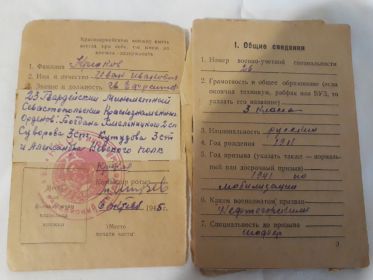 Красноармейскую книжку иметь
всегда при себе. Не имеющих
книжек задерживать
1. Фамилия
2. Имя и отчество Иван Иванович
3. Звание и должность гв.
23 Гвардейский Минометный
Севастопольский Краснознаменный
Орденов: Богдана Хмельницкого 2 ст
Суворова 3 ст, Кутузова 3 ст
и Александра Невского полк
Командир роты
1945 г.
(Место
печати части)
1. Общие сведения
1. Номер военно-учетной специальности
26
2. Грамотность и общее образование (если
окончил техникум, рабфак или ВУЗ, то
указать его название)
3 класса
3. Национальность русский
4. Год рождения 1911
5. Год призыва (указать также — нормаль-
ный или досрочный призыв)
1941 по
мобилизации
6. Каким военкоматом призван
7. Специальность до призыва
шофер
3